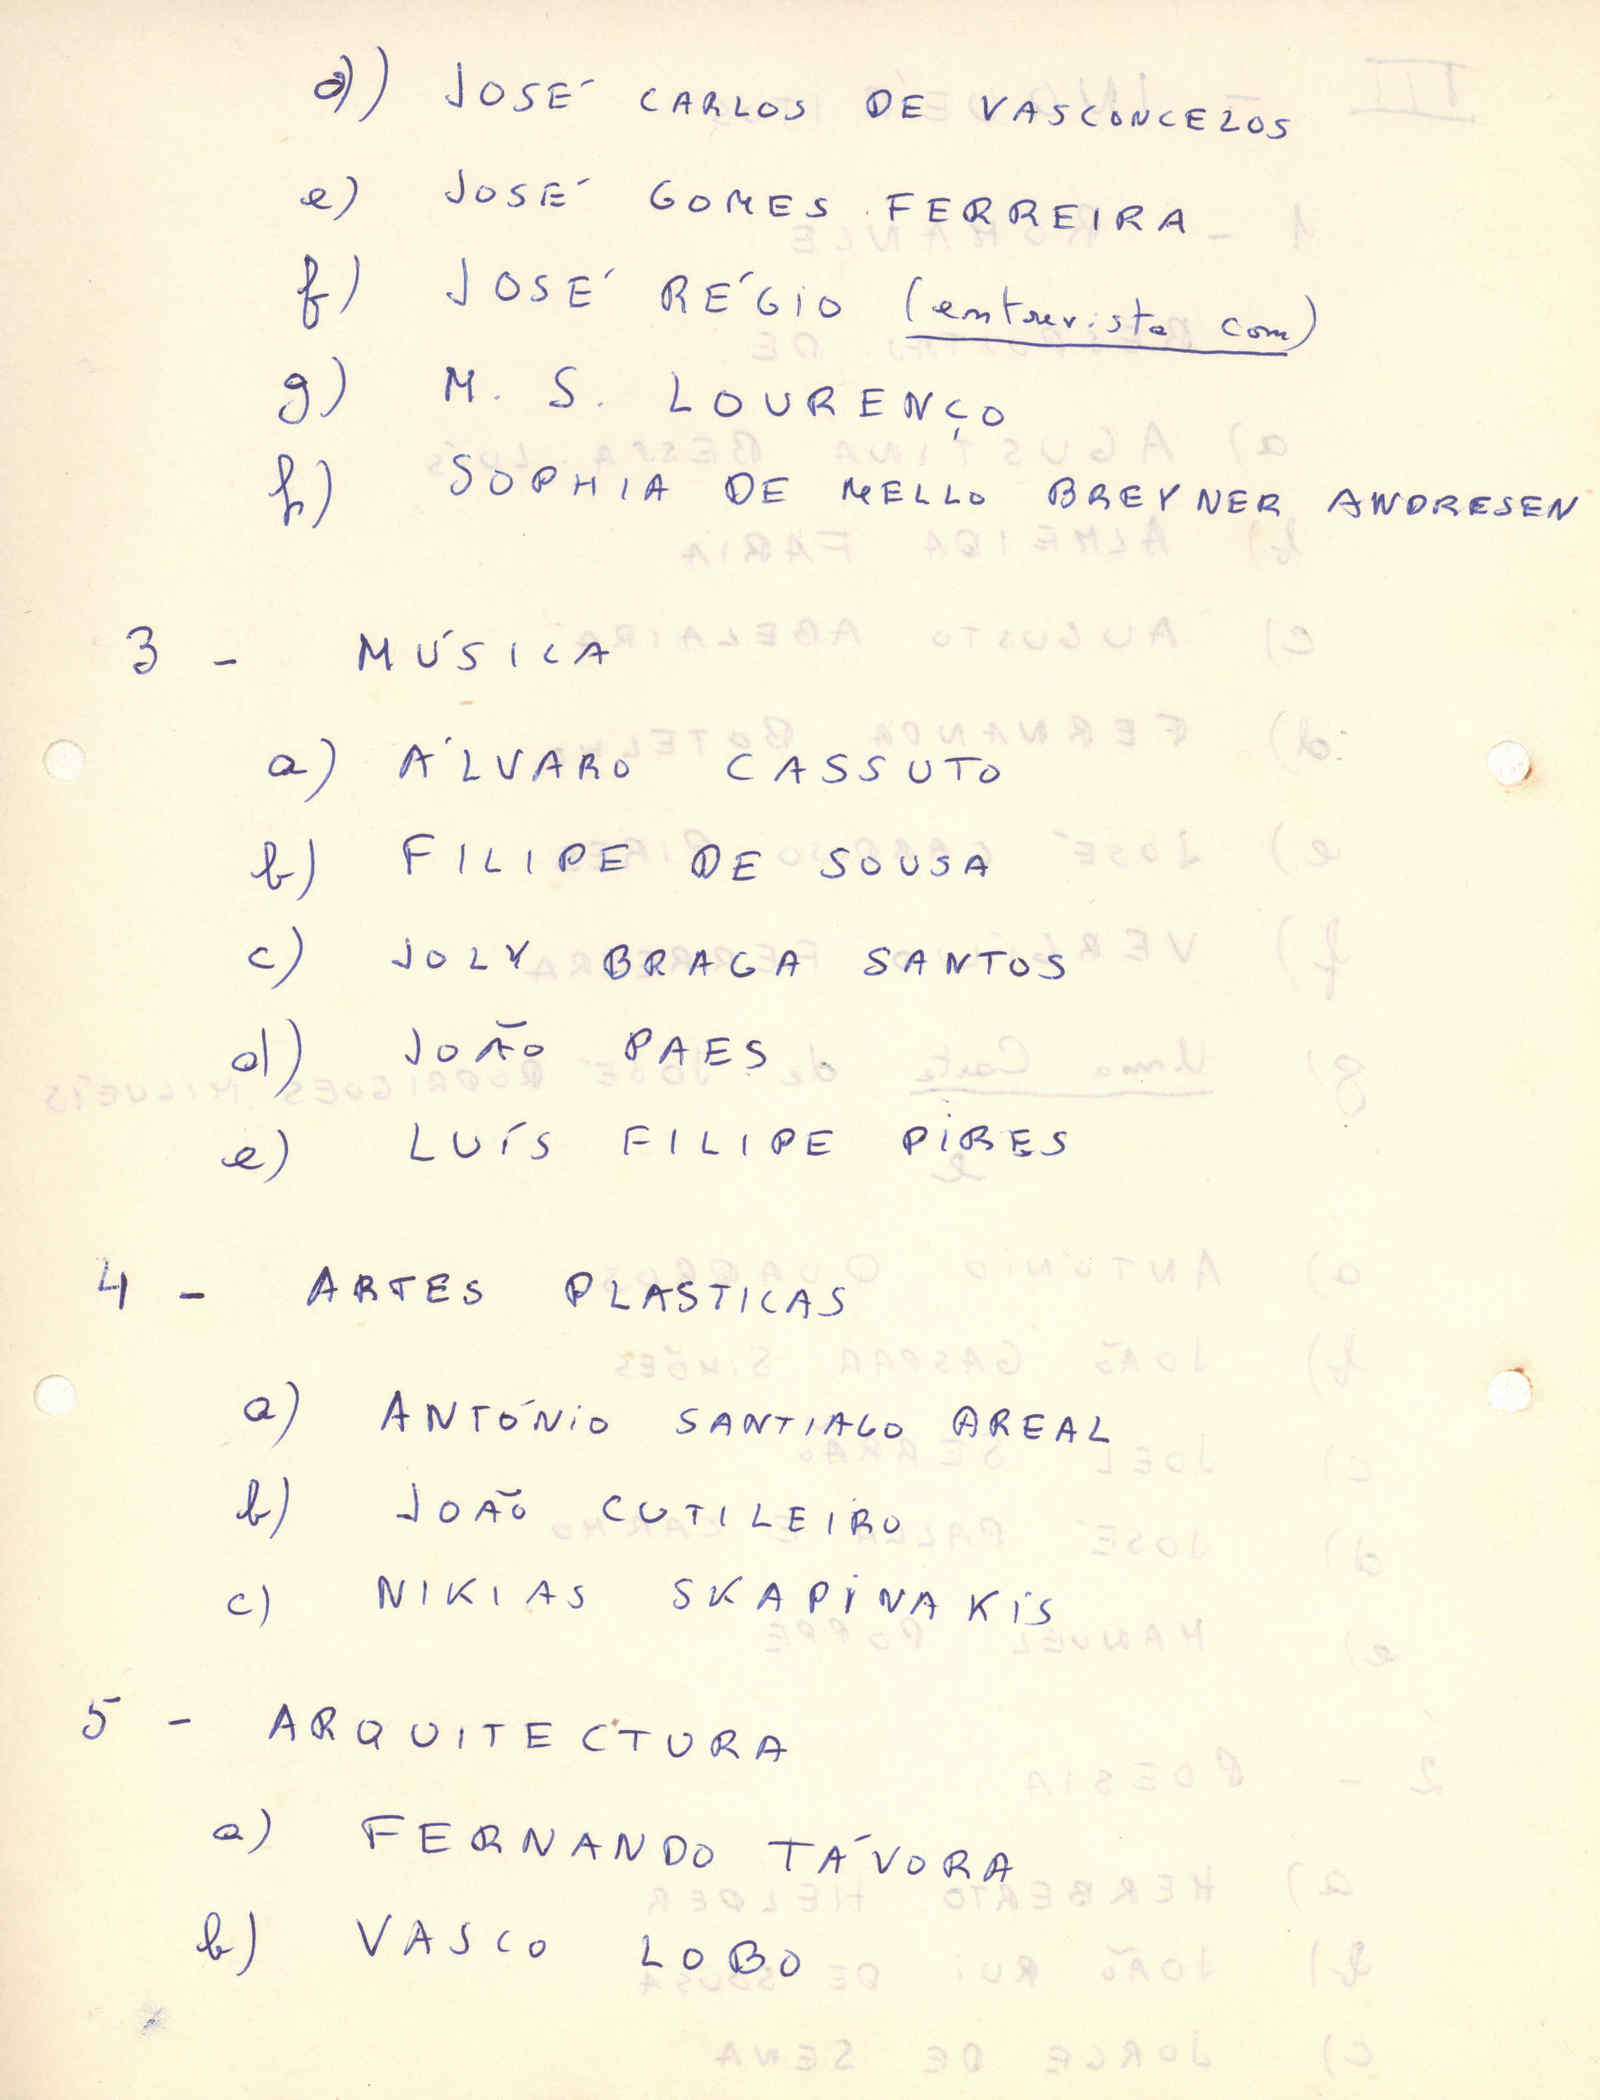 d) JOSÉ CARLOS DE VASCONCELOS
e) JOSÉ GOMES FERREIRA
f) JOSÉ RÉGIO (entrevista com)
g) M. S. LOURENÇO
h) SOPHIA DE MELLO BREYNER ANDRESEN
3 - MÚSICA
a) ÁLVARO CASSUTO
b) FILIPE DE SOUSA
c) JOLY BRAGA SANTOS
d) JOÃO PAES
e) LUÍS FILIPE PIRES
4 - ARTES PLASTICAS
a) ANTÓNIO SANTIAGO AREAL
b) JOÃO CUTILEIRO
c) NIKIAS SKAPINAKIS
5 - ARQUITECTURA
a) FERNANDO TÁVORA
b) VASCO LOBO